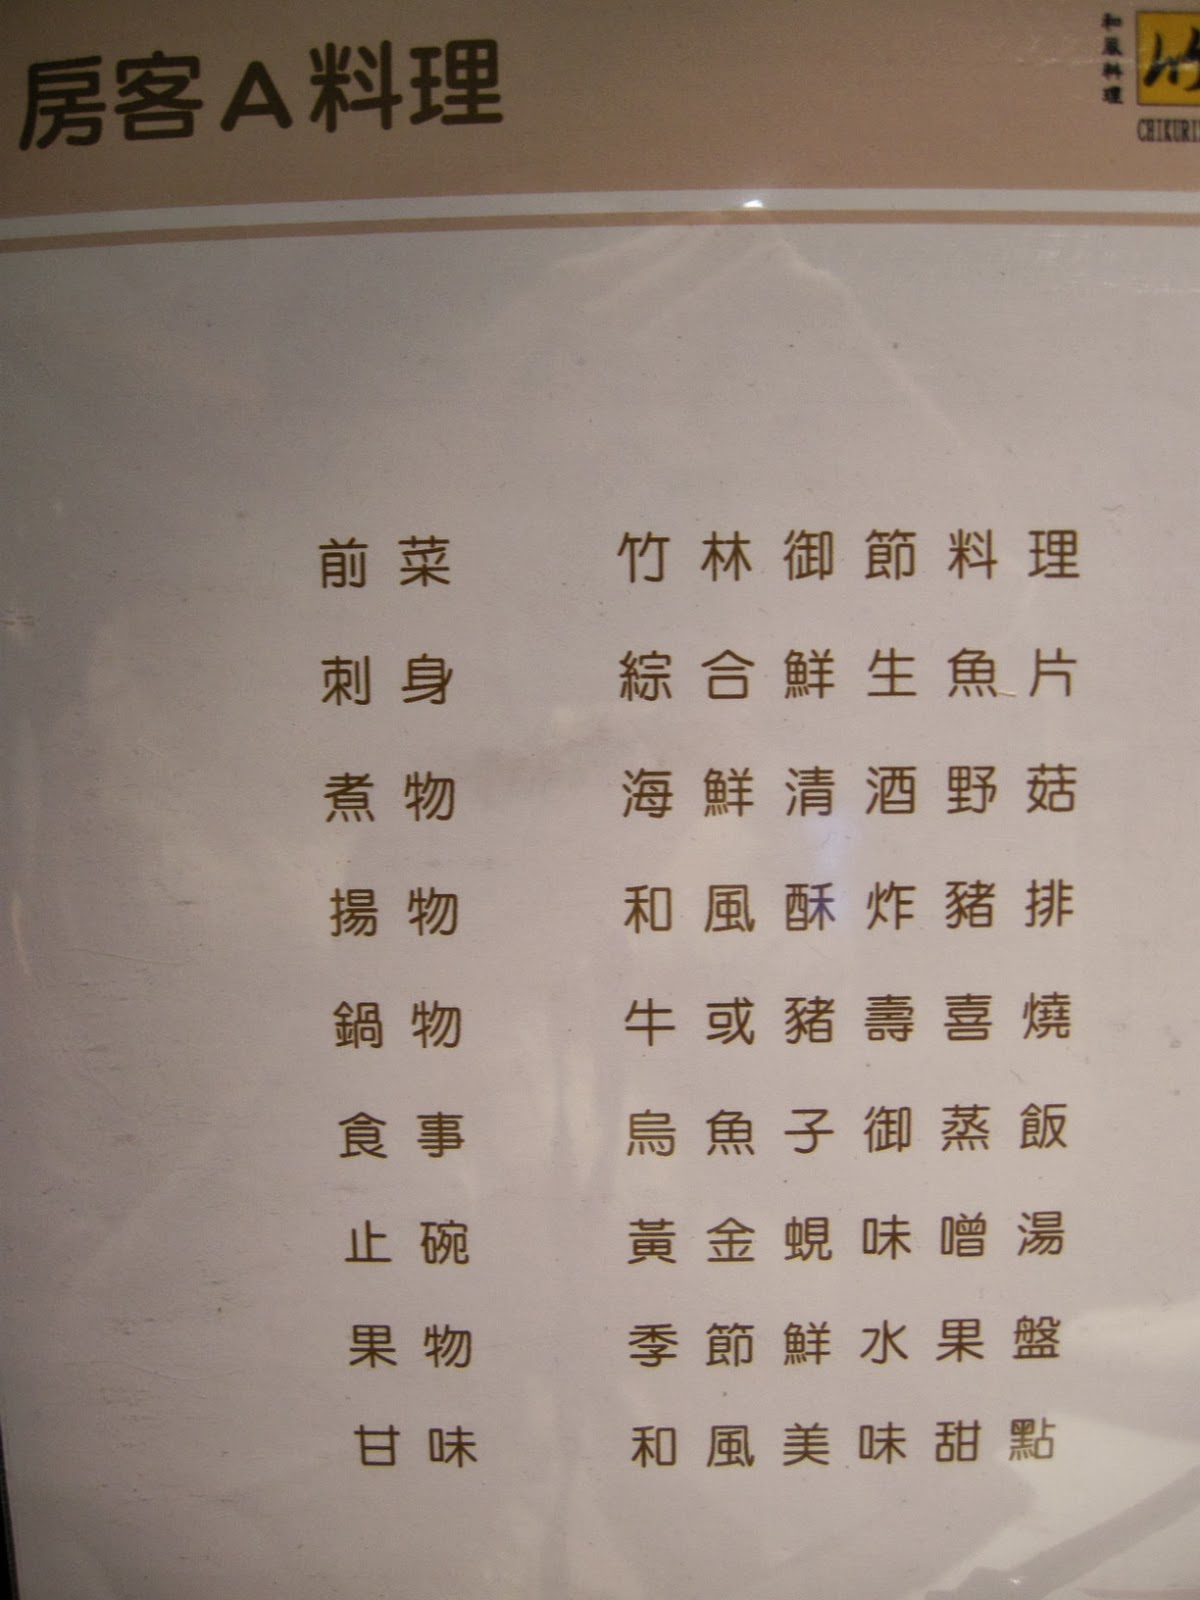 房客A料理
和風料理
前菜 竹林御節料理
刺身 綜合鮮生魚片
煮物 海鮮清酒野菇
揚物 和風酥炸豬排
鍋物 牛或豬壽喜燒
食事 烏魚子御蒸飯
止碗 黃金蜆味噌湯
果物 季節鮮水果盤
甘味 和風美味甜點